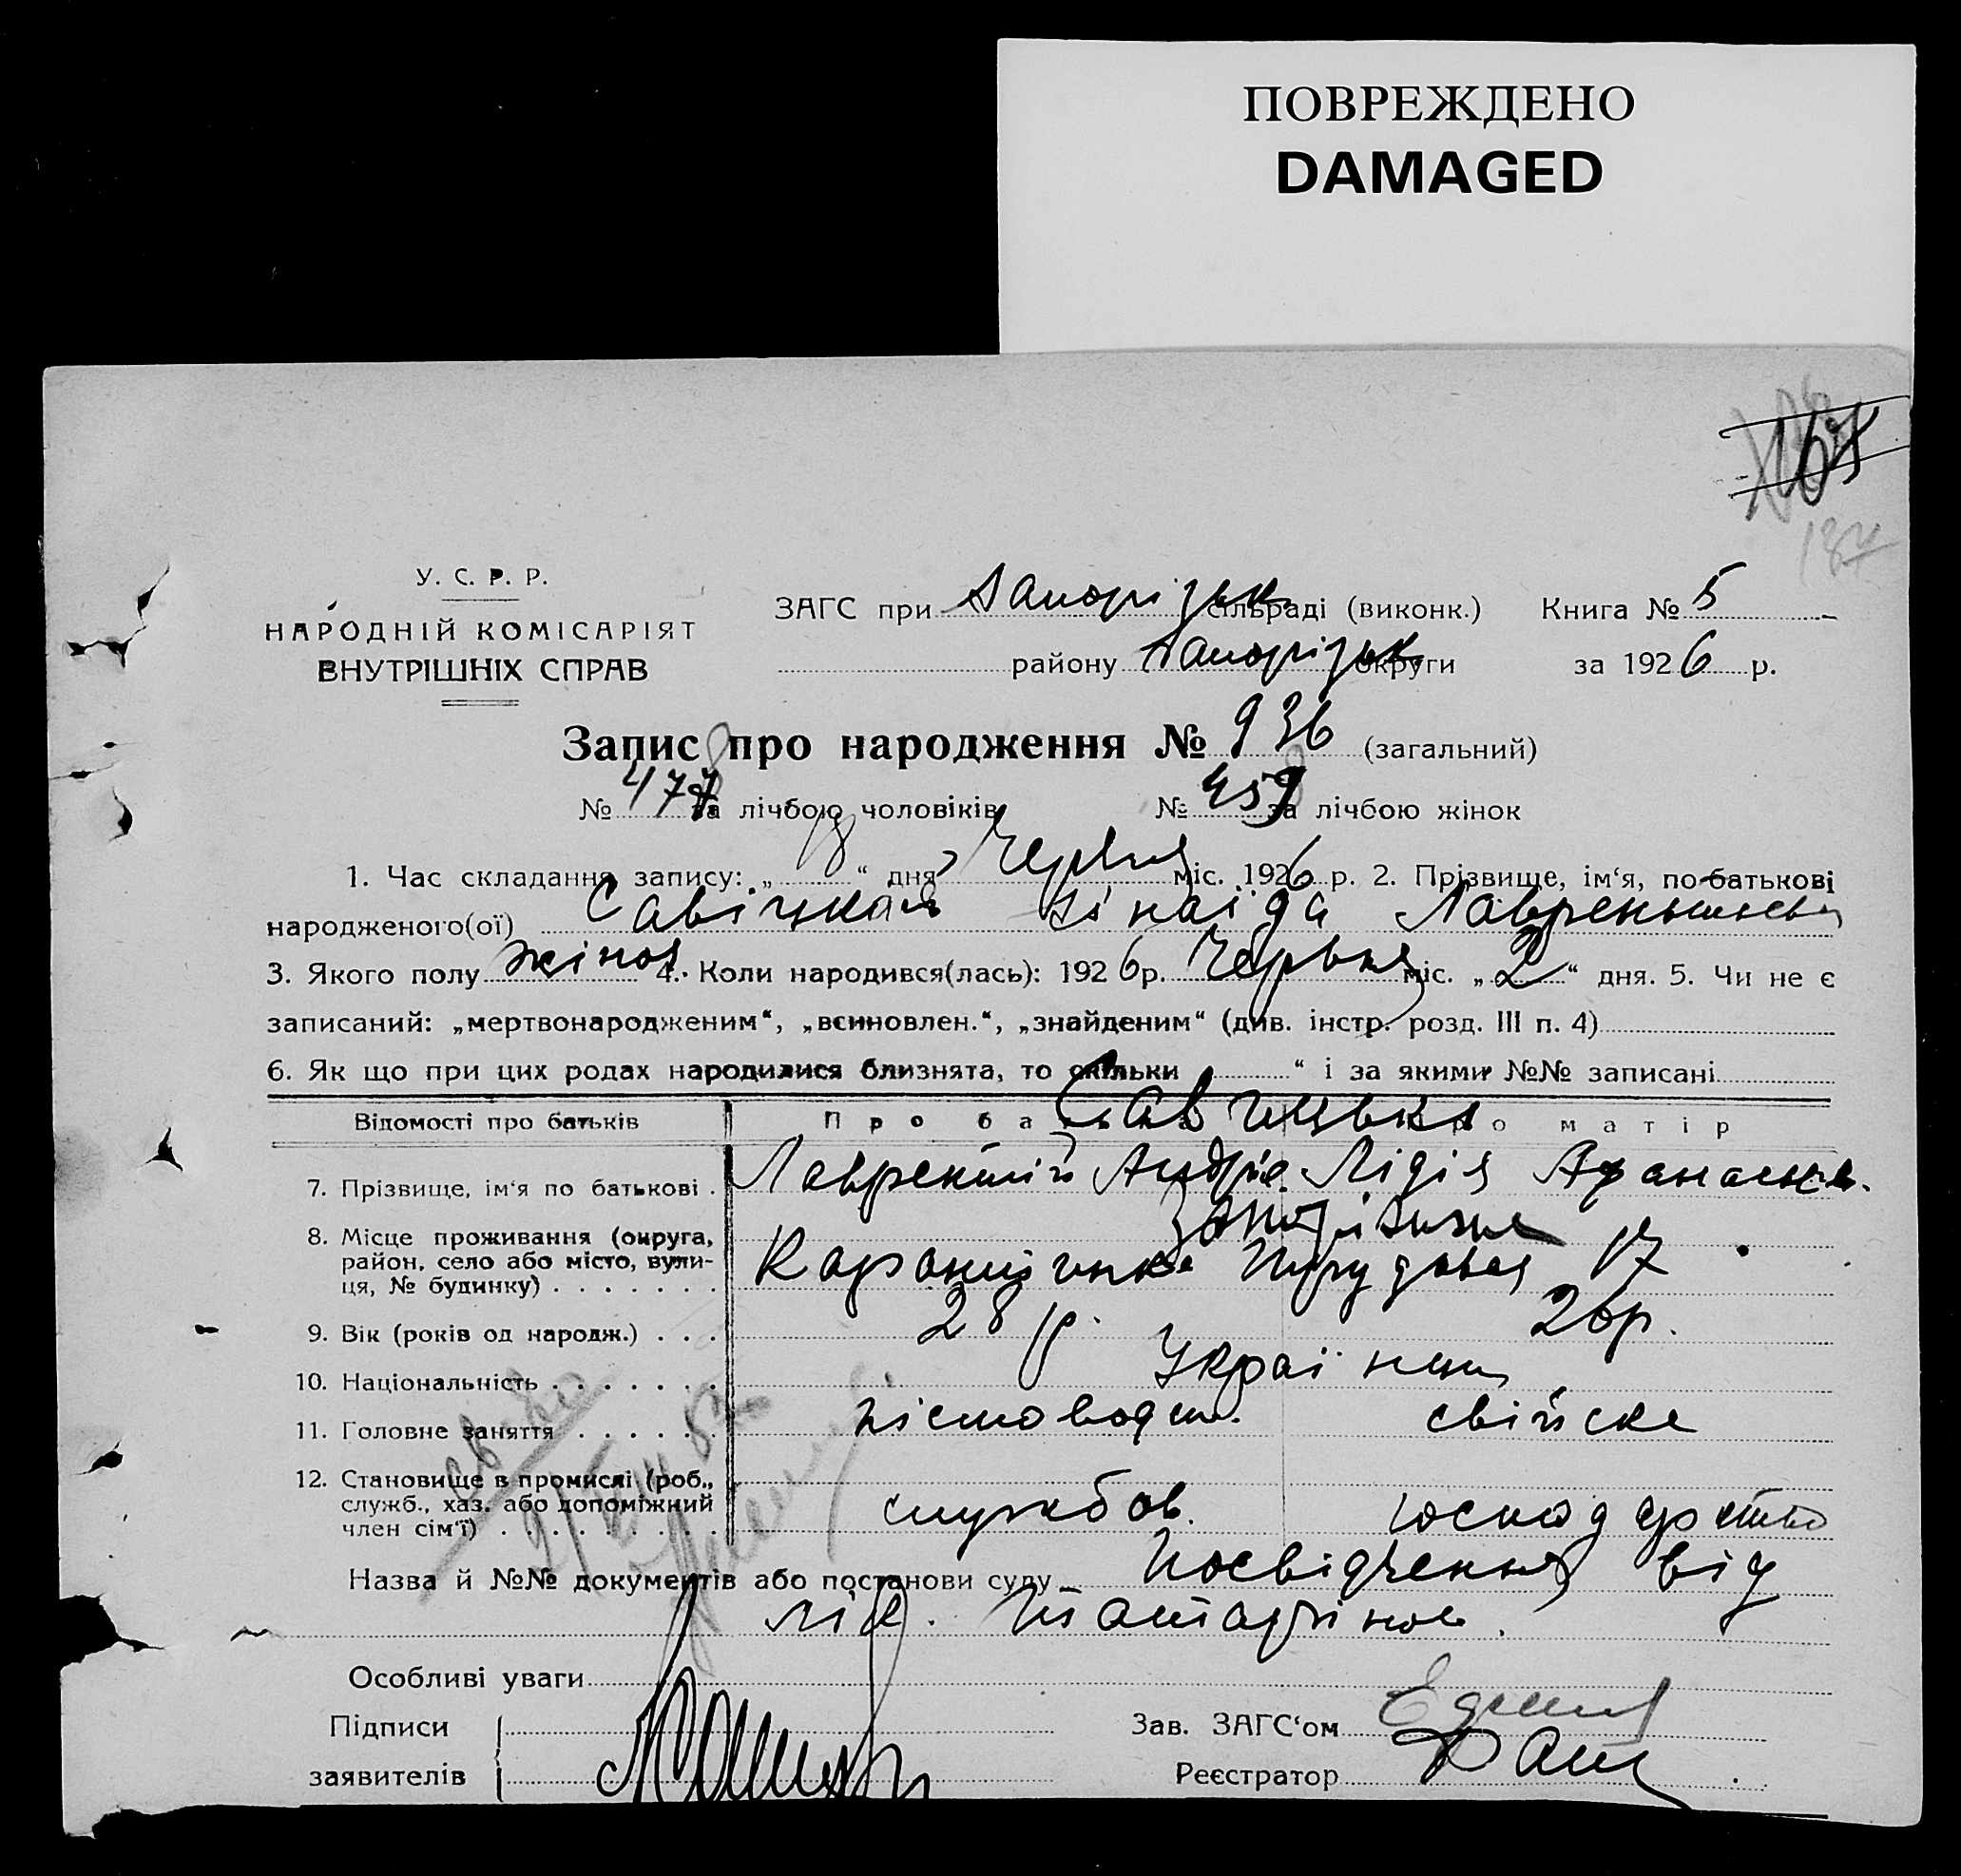 ПОВРЕЖДЕНО
DAMAGED
У. С. Р. Р.
НАРОДНІЙ КОМІСАРІЯТ
ВНУТРІШНІХ СПРАВ
ЗАГС при Запорізьк сільраді (виконк.) Книга № 5
району Запорізьк округи за 1926 р.
Запис про народження № 936 (загальний)
№ 477 за лічбою чоловіків № 459 за лічбою жінок
1. Час складання запису: „ 18 “ дня Червня міс. 1926 р. 2. Прізвище, ім‘я, по-батькові
народженого(ої) Савіцкая Зінаіда
3. Якого полу жіноч 4. Коли народився(лась): 1926 р. Червня міс. „ 2 “ дня. 5. Чи не є
записаний: „мертвонародженим“, „всиновлен.“, „знайденим“ (див. інстр. розд. III п. 4)
6. Як що при цих родах народилися близнята, то скільки “ і за якими №№ записані
Відомості про батьків Про матір
7. Прізвище, ім‘я по батькові . Лаврентій Андріє. Лідія Афанасьев.
8. Місце проживання (округа,
район, село або місто, вули-
ця, № будинку) . . . . . . . 17
9. Вік (років од народж.) . . . 28 р. 26 р.
10. Національність . . . . . . . Украінци
11. Головне заняття . . . . . . пісмоводит. свійске
12. Становище в промислі (роб.,
служб., хаз. або допоміжний
член сім‘ї) . . . . . . . . . службов. господарство
Назва й №№ документів або постанови суду Посвідчення від
лік.
Особливі уваги
Підписи
заявителів
Зав. ЗАГС‘ом
Реєстратор